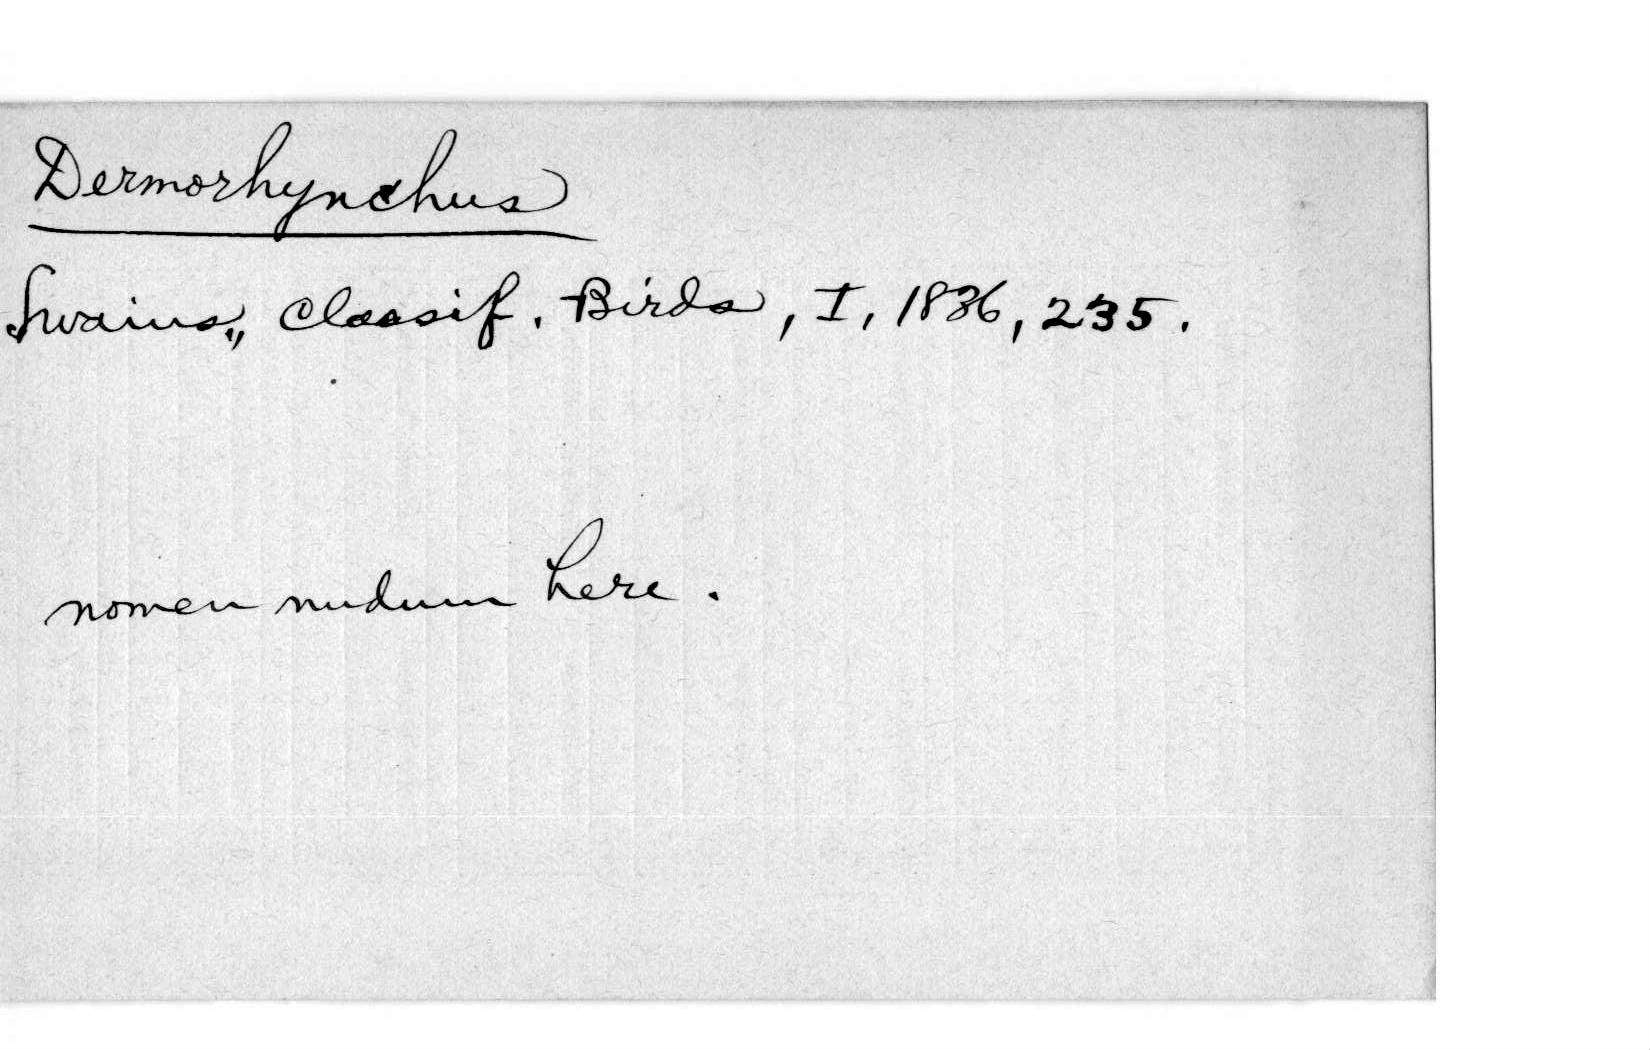 Dermorhynchus
Swains., Classif. Birds, I, 1836, 235.
nomen nudum here.